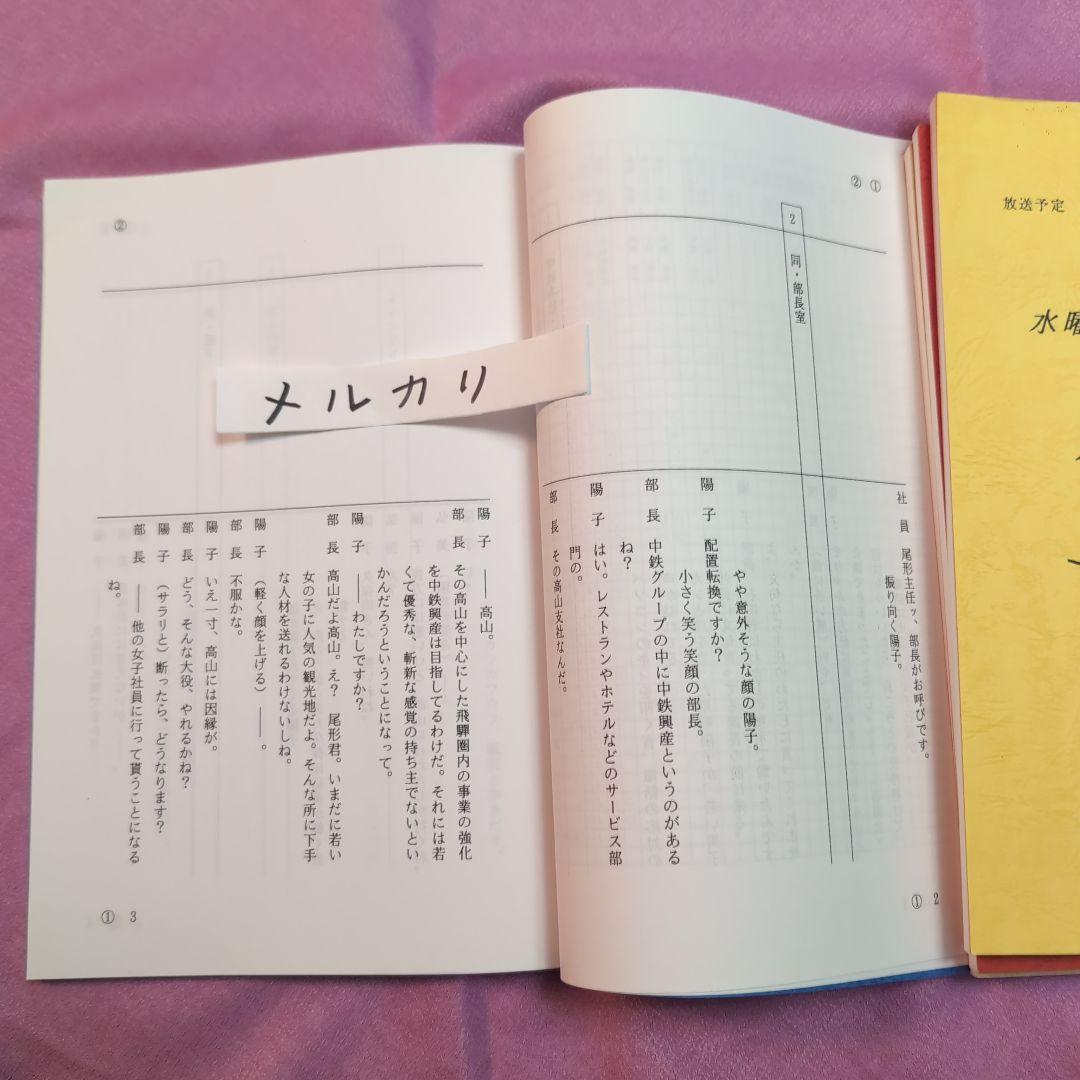 ② ①
2 同・部長室
社 員 尾形主任ッ、部長がお呼びです。
振り向く陽子。
やや意外そうな顔の陽子。
陽 子 配置転換ですか?
小さく笑う笑顔の部長。
部 長 中鉄グループの中に中鉄興産というのがある
ね?
陽 子 はい。レストランやホテルなどのサービス部
門の。
部 長 その高山支社なんだ。
① 2
②
陽 子 ――高山。
部 長 その高山を中心にした飛騨圏内の事業の強化
を中鉄興産は目指してるわけだ。それには若
くて優秀な、斬新な感覚の持ち主でないとい
かんだろうということになって。
陽 子 ――わたしですか?
部 長 高山だよ高山。え? 尾形君。いまだに若い
女の子に人気の観光地だよ。そんな所に下手
な人材を送れるわけないしね。
陽 子 (軽く顔を上げる)――。
部 長 不服かな。
陽 子 いえ一寸、高山には因縁が。
部 長 どう、そんな大役、やれるかね?
陽 子 (サラリと)断ったら、どうなります?
部 長 ――他の女子社員に行って貰うことになる
ね。
① 3
メルカリ
放送予定
水曜